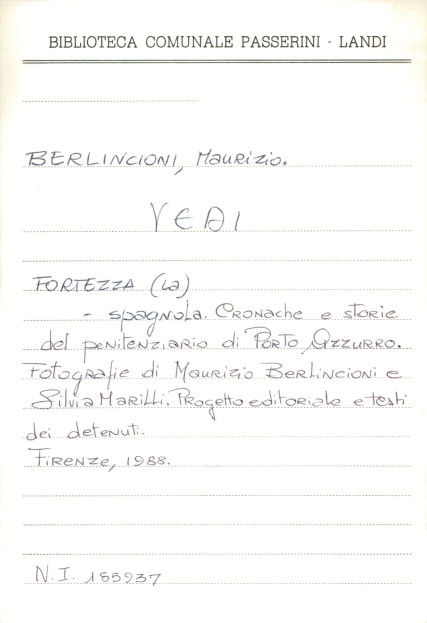 BIBLIOTECA COMUNALE PASSERINI - LANDI
BERLINCIONI, Maurizio.
VEDI
FORTEZZA (La)
- spagnola. Cronache e storie
del penitenziario di Porto Azzurro.
Fotografie di Maurizio Berlincioni e
Silvia Marilli. Progetto editoriale e testi
dei detenuti.
Firenze, 1988.
N.I. 155937